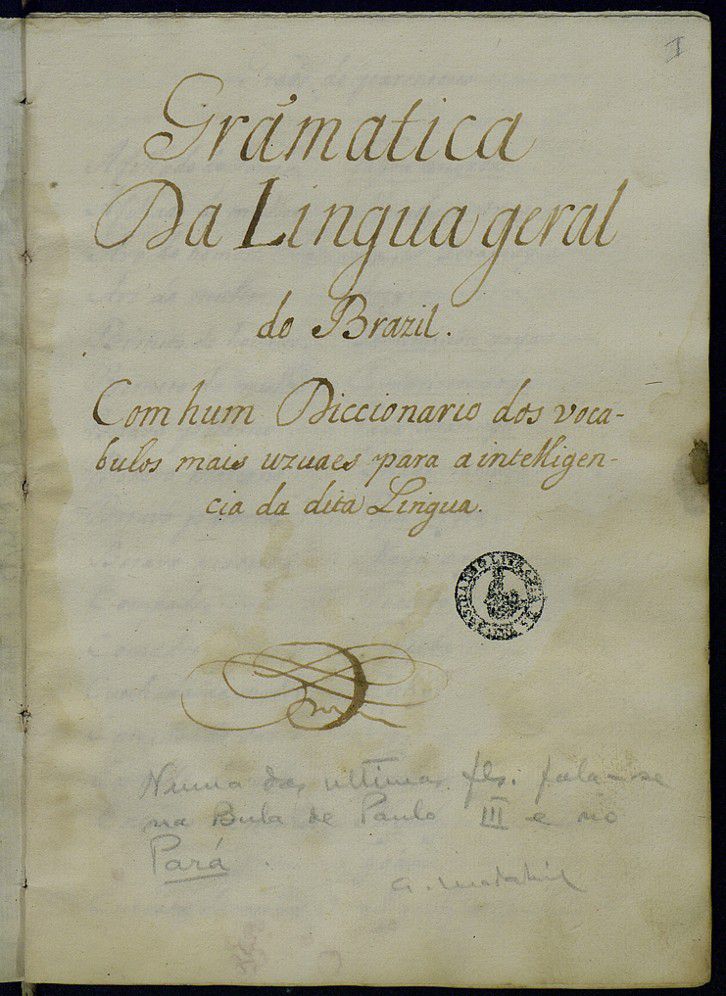 I
Gramatica
Da Lingua geral
do Brazil.
Com hum Diccionario dos voca-
bulos mais uzuaes para a intelligen-
cia da dita Lingua.
Numa das ultimas fls. fala-se
na Bula de Paulo III e no
Pará.